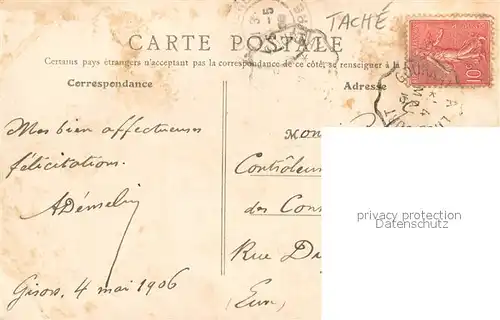 TACHÉ
CARTE POSTALE
Certains pays étrangers n'acceptant pas la correspondance de ce côté, se renseigner à la
Correspondance
Adresse
10c
Mes bien affectueuses
félicitations.
ADémelin
Gisors, 4 mai 1906
Mon
Contrôleu
des Con
Rue D
(Eure)
privacy protection
www.ansichtskartenversand.com